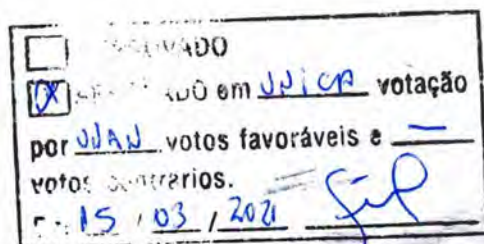 em UNICA votação
por UNAN votos favoráveis e —
votos contrários.
15 / 03 / 2021